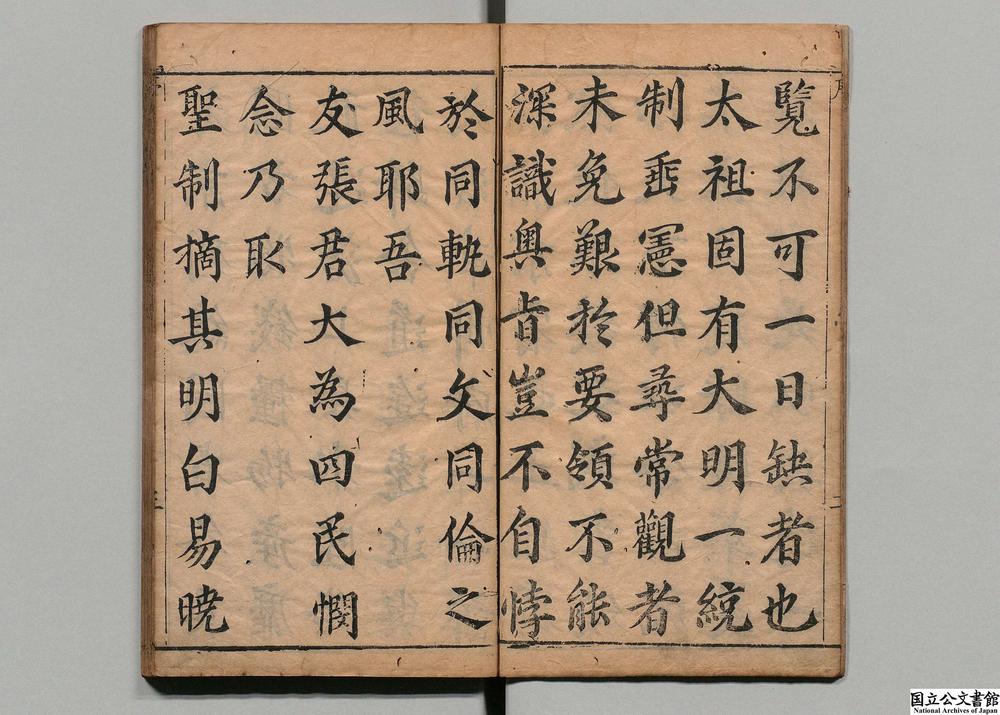 覧不可一日缺者也
太祖固有大明一統
制垂憲但尋常觀者
未免艱於要領不能
深識奥旨豈不自悖
於同軌同文同倫之
風耶吾
友張君大為四民憫
念乃取
聖制摘其明白易暁
二
三
国立公文書館
National Archives of Japan